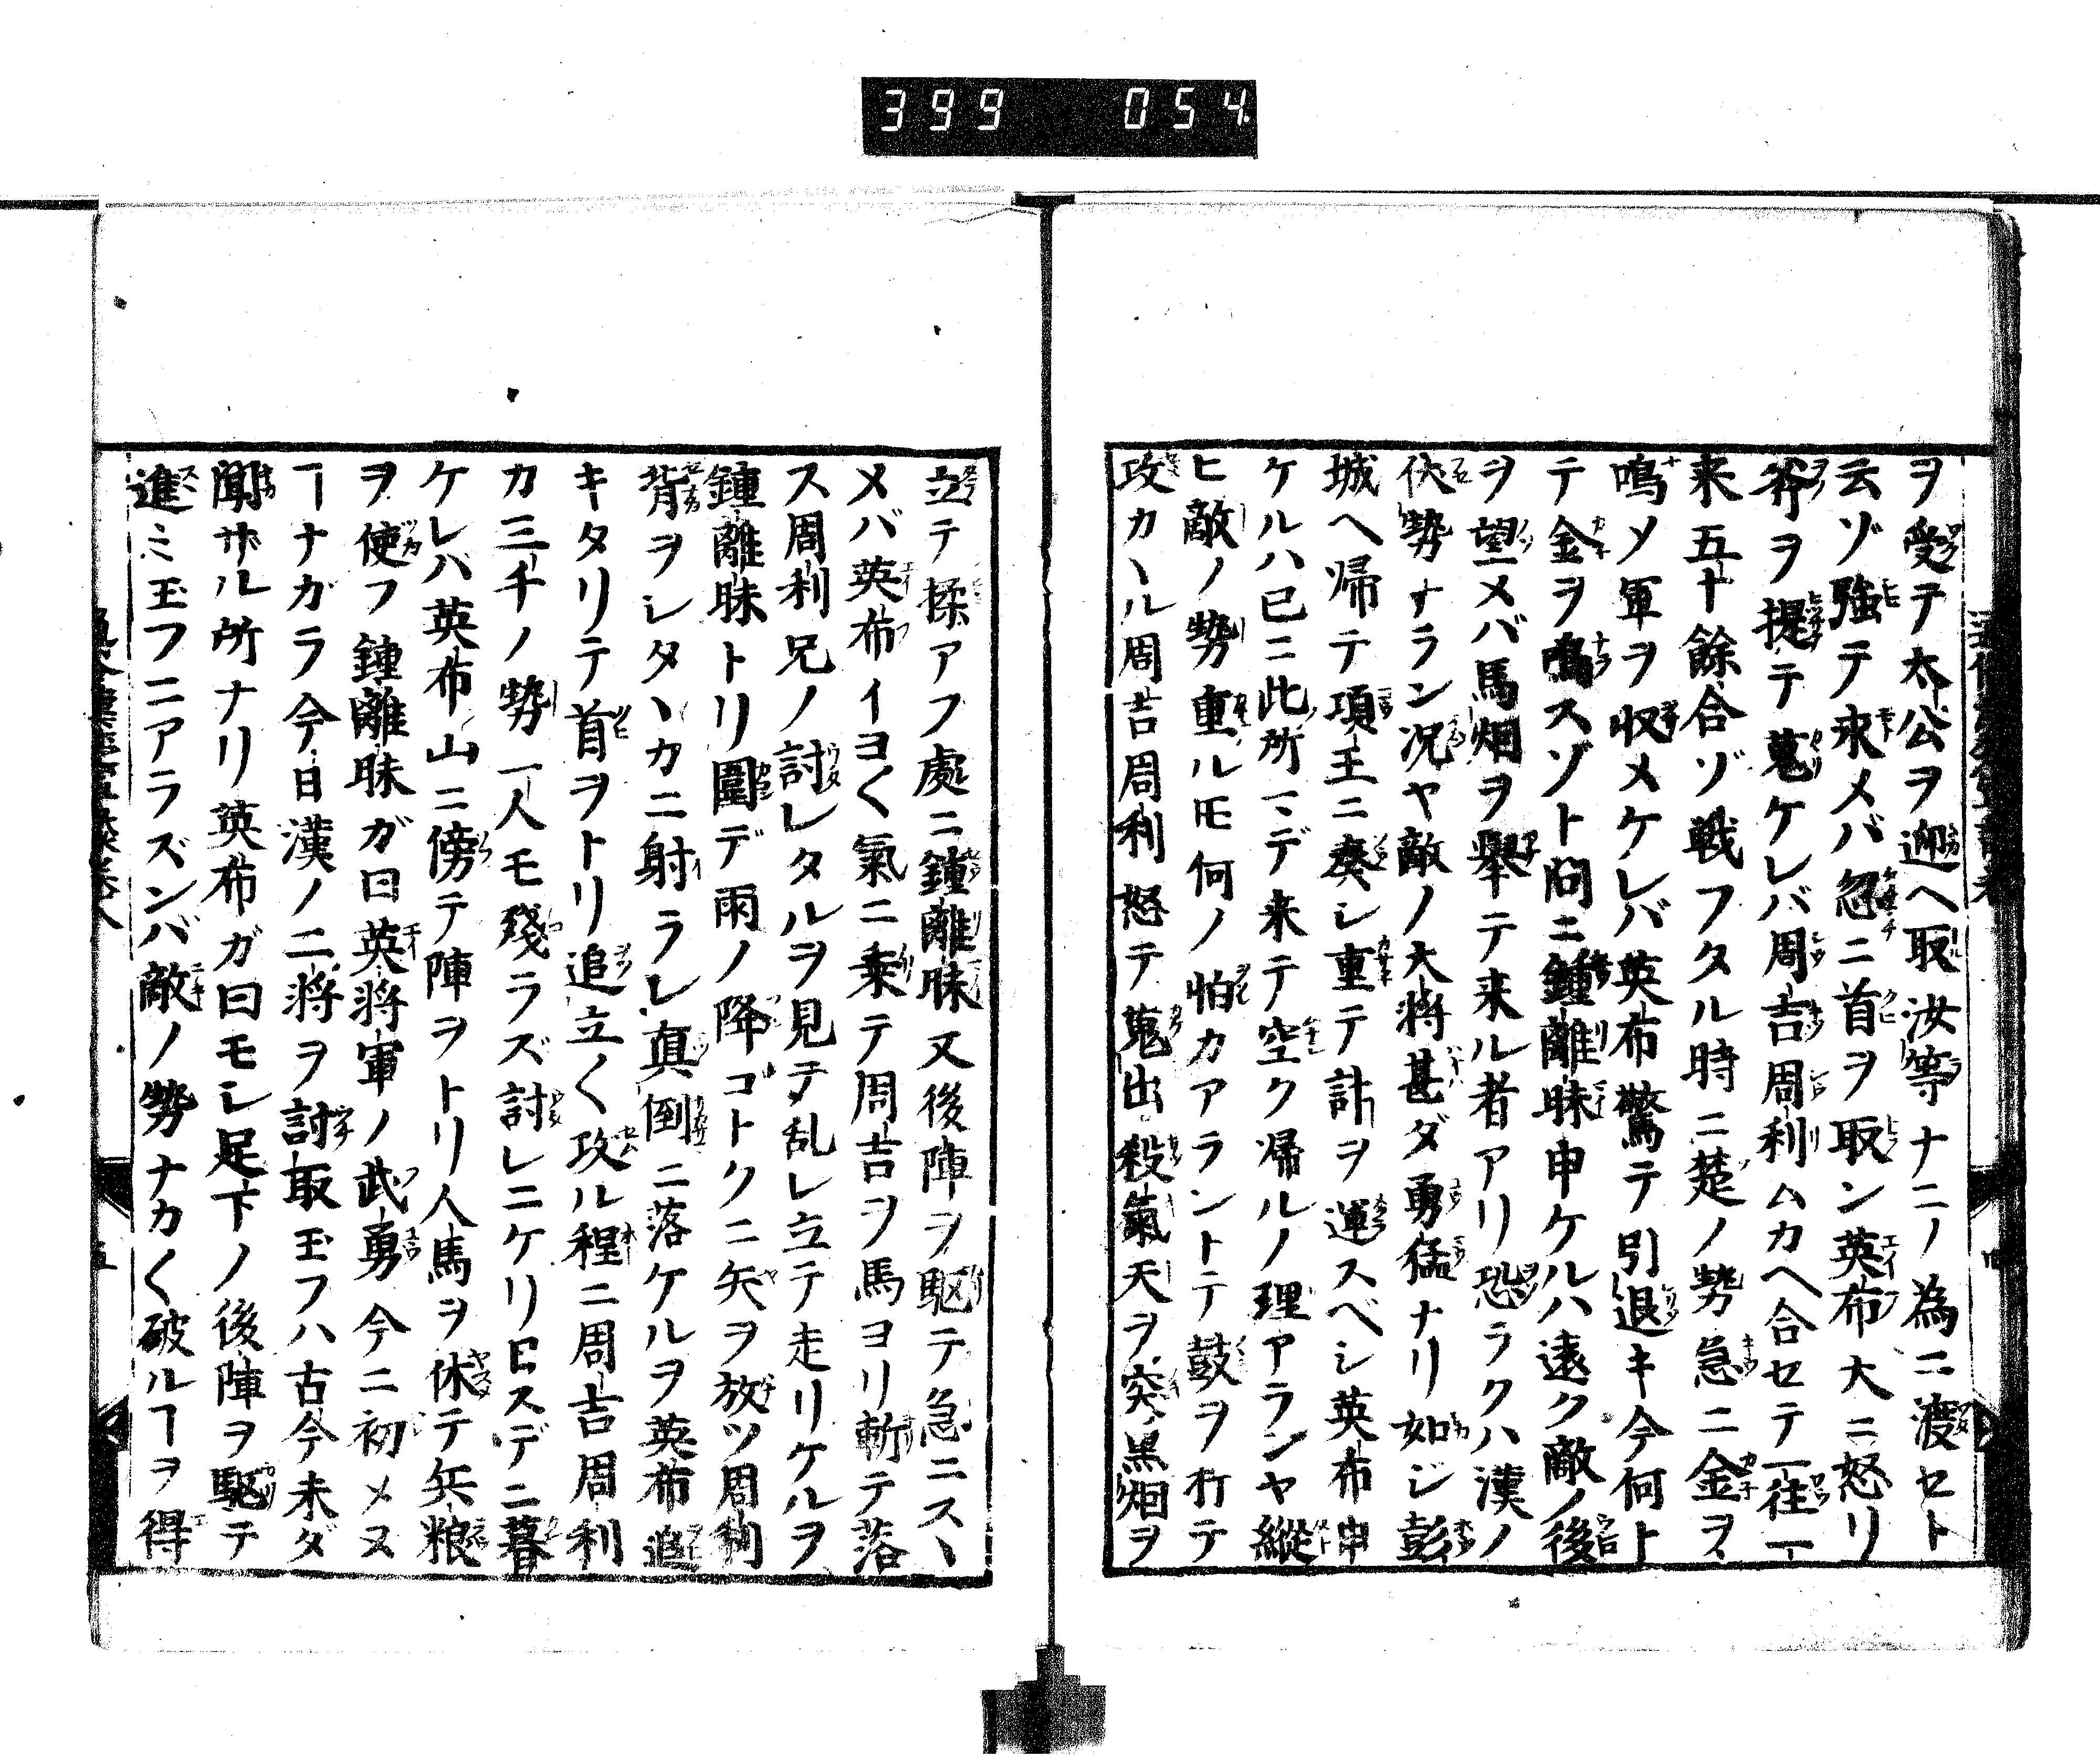 399 054
ヲ受テ太公ヲ迎ヘ取汝等ナニノ為ニ渡セト
云ゾ強テ求メバ忽ニ首ヲ取ン英布大ニ怒リ
斧ヲ提テ蒐ケレバ周吉周利ムカヘ合セテ一往一
来五十餘合ゾ戦フタル時ニ楚ノ勢急ニ金ヲ
鳴メ軍ヲ収メケレバ英布驚テ引退キ今何ト
テ金ヲ鳴スゾト問ニ鍾離昧申ケルハ遠ク敵ノ後
ヲ望メバ馬烟ヲ舉テ来ル者アリ恐ラクハ漢ノ
伏勢ナラン况ヤ敵ノ大将甚ダ勇猛ナリ如ジ彭
城ヘ帰テ項王ニ奏シ重テ計ヲ運スベシ英布申
ケルハ已ニ此所マデ来テ空ク帰ルノ理アランヤ縦
ヒ敵ノ勢重ルモ何ノ怕カアラントテ鼓ヲ打テ
攻カヽル周吉周利怒テ蒐出殺氣天ヲ突黒烟ヲ
立テ揉アフ處ニ鍾離昧又後陣ヲ駆テ急ニスヽ
メバ英布イヨ〱氣ニ乗テ周吉ヲ馬ヨリ斬テ落
ス周利兄ノ討レタルヲ見テ乱レ立テ走リケルヲ
鍾離昧トリ圍デ雨ノ降ゴトクニ矢ヲ放ツ周利
背ヲシタヽカニ射ラレ真倒ニ落ケルヲ英布追
キタリテ首ヲトリ追立〱攻ル程ニ周吉周利
カ三千ノ勢一人モ残ラズ討レニケリ日スデニ暮
ケレバ英布山ニ傍テ陣ヲトリ人馬ヲ休テ兵粮
ヲ使フ鍾離昧ガ曰英将軍ノ武勇今ニ初メヌ
ヿナガラ今日漢ノ二将ヲ討取玉フハ古今未ダ
聞ザル所ナリ英布ガ曰モシ足下ノ後陣ヲ駆テ
進ミ玉フニアラズンバ敵ノ勢ナカ〱破ルヿヲ得